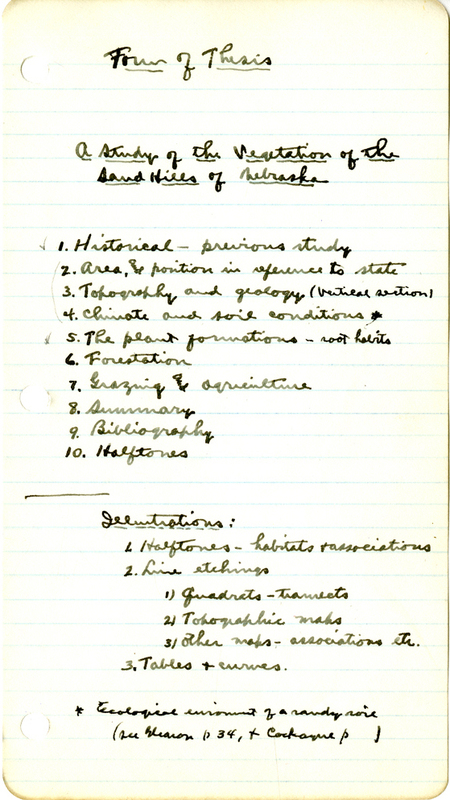 Form of Thesis
A Study of the Vegetation of the
Sand Hills of Nebraska
1. Historical – previous study
2. Area, & position in reference to state
3. Topography and geology (vertical section)
4. Climate and soil conditions *
5. The plant formations – root habits
6. Forestation
7. Grazing & agriculture
8. Summary
9. Bibliography
10. Halftones
Illustrations:
1. Halftones – habitats + associations
2. Line etchings
1) Quadrats – transects
2) Topographic maps
3) Other maps – associations etc.
3. Tables + curves.
* Ecological of a sandy soil
(see Gleason p 34, + Cockayne p )